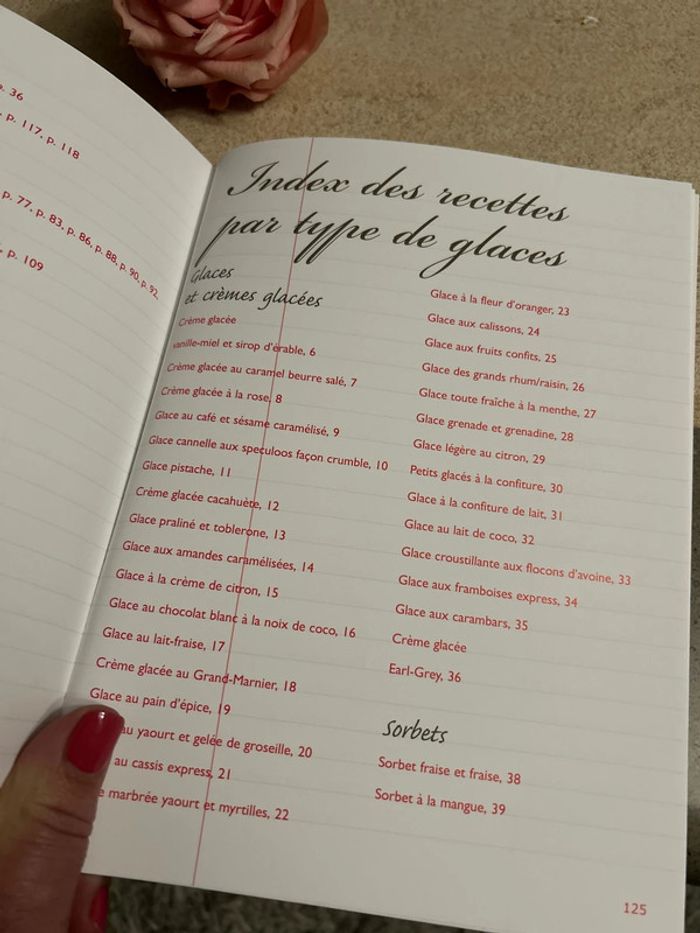 p. 36
p. 117, p. 118
p. 77, p. 83, p. 86, p. 88, p. 90, p. 92,
p. 109
Index des recettes
par type de glaces
Glaces
et crèmes glacées
Crème glacée
vanille-miel et sirop d'érable, 6
Crème glacée au caramel beurre salé, 7
Crème glacée à la rose, 8
Glace au café et sésame caramélisé, 9
Glace cannelle aux speculoos façon crumble, 10
Glace pistache, 11
Crème glacée cacahuète, 12
Glace praliné et toblerone, 13
Glace aux amandes caramélisées, 14
Glace à la crème de citron, 15
Glace au chocolat blanc à la noix de coco, 16
Glace au lait-fraise, 17
Crème glacée au Grand-Marnier, 18
Glace au pain d'épice, 19
au yaourt et gelée de groseille, 20
au cassis express, 21
marbrée yaourt et myrtilles, 22
Glace à la fleur d'oranger, 23
Glace aux calissons, 24
Glace aux fruits confits, 25
Glace des grands rhum/raisin, 26
Glace toute fraîche à la menthe, 27
Glace grenade et grenadine, 28
Glace légère au citron, 29
Petits glacés à la confiture, 30
Glace à la confiture de lait, 31
Glace au lait de coco, 32
Glace croustillante aux flocons d'avoine, 33
Glace aux framboises express, 34
Glace aux carambars, 35
Crème glacée
Earl-Grey, 36
Sorbets
Sorbet fraise et fraise, 38
Sorbet à la mangue, 39
125